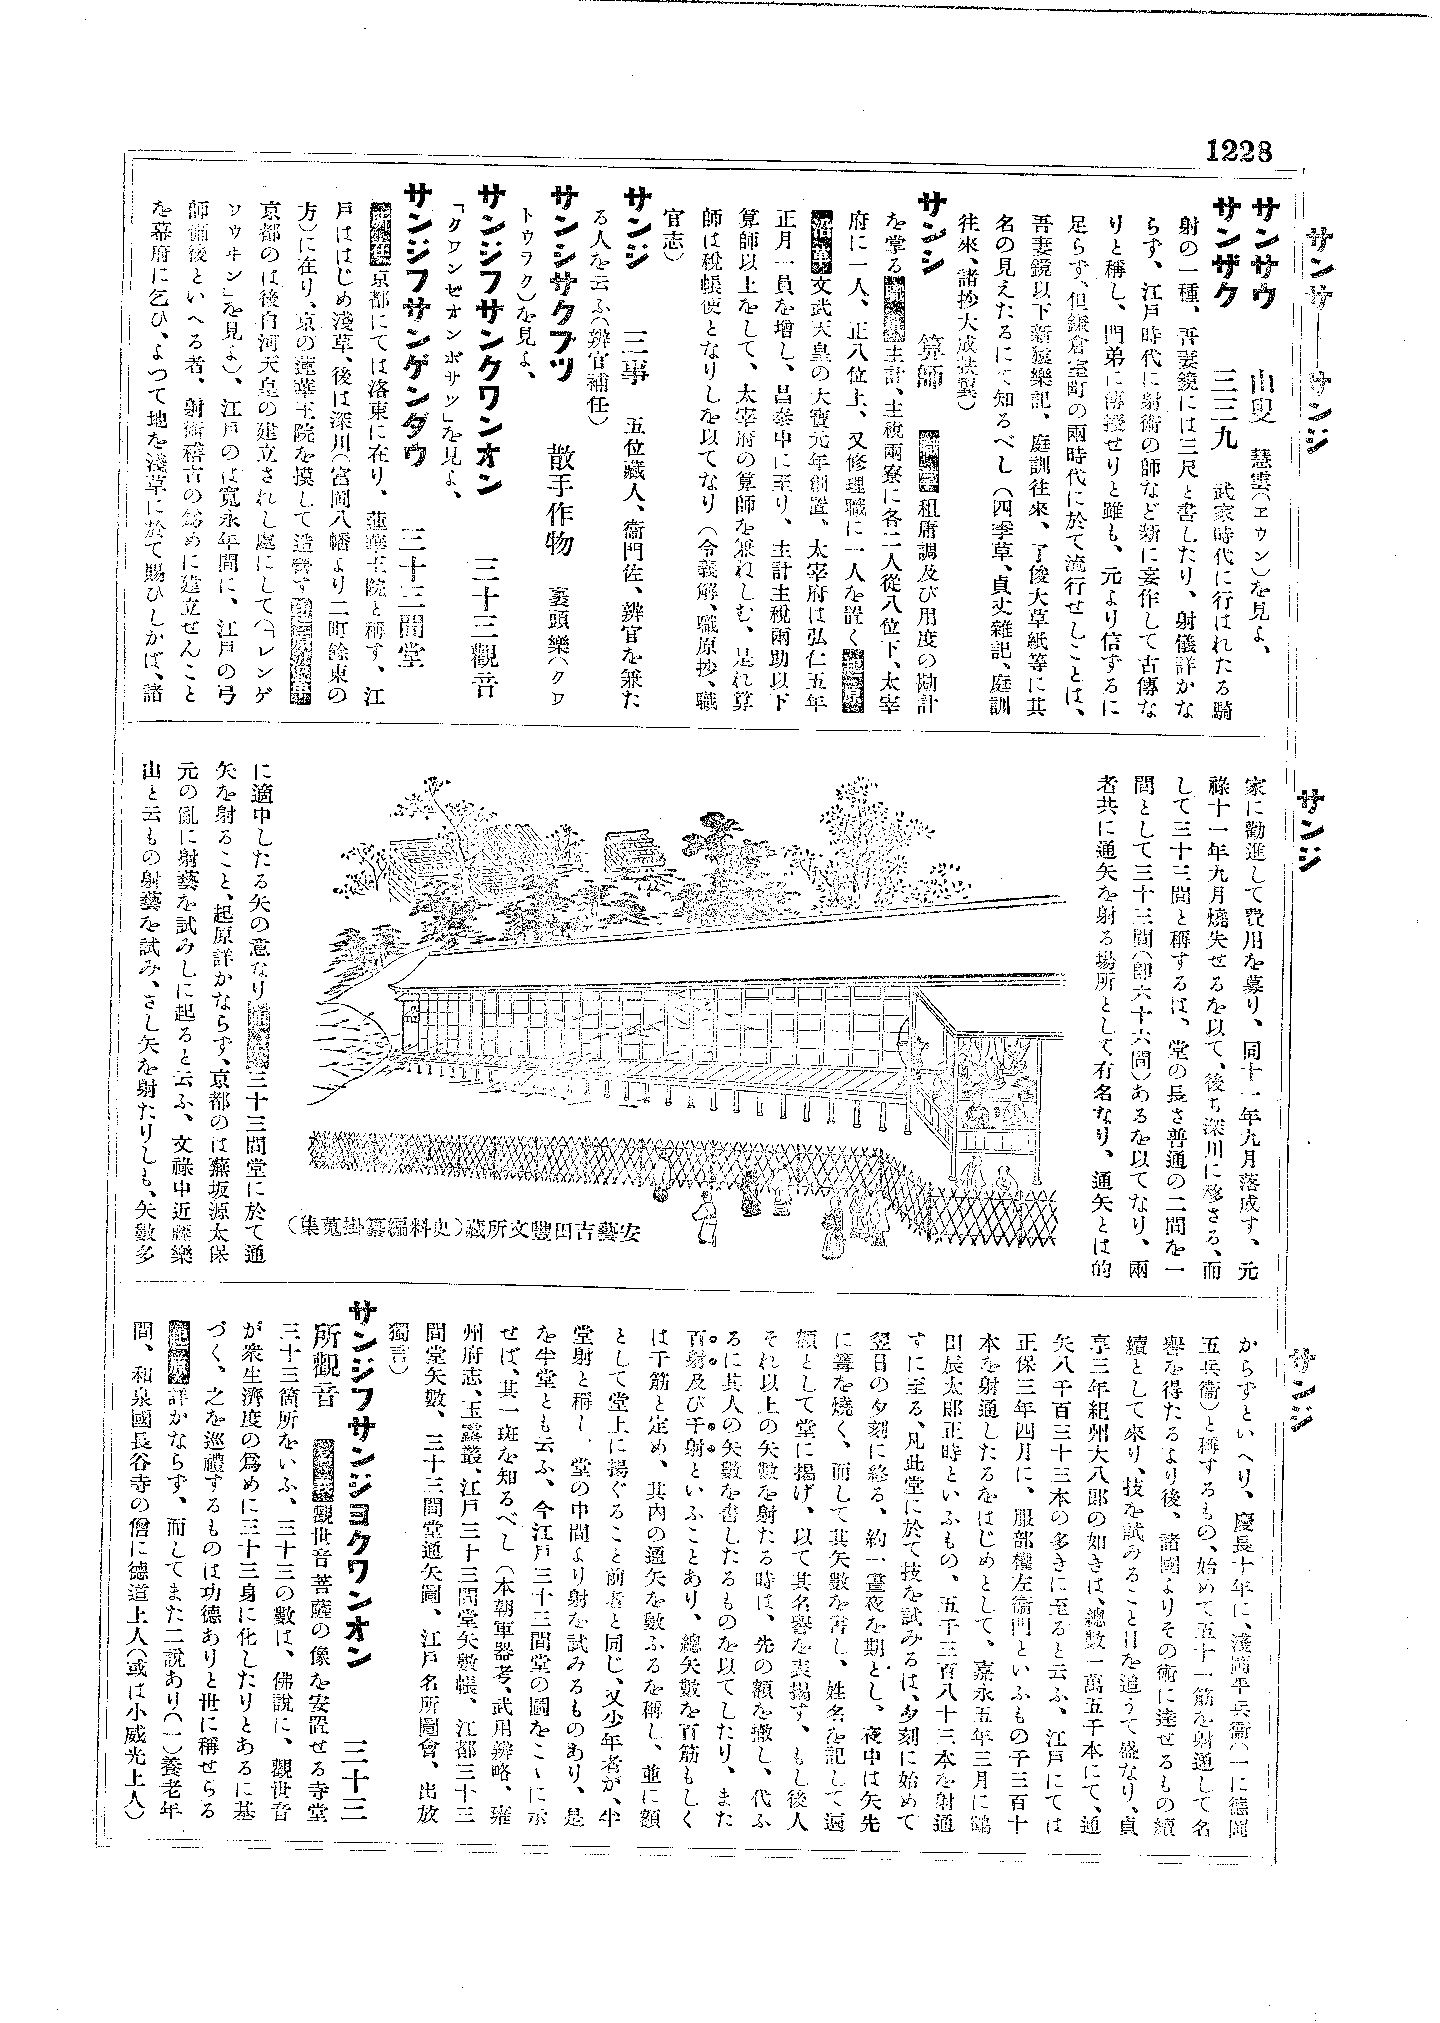 1228
サンサ――サンジ
サンジ
サンジ
サンサウ 山叟 慧雲(ヱウン)を見よ、
サンザク 三三九 武家時代に行はれたる騎
射の一種、吾妻鏡には三尺と書したり、射儀詳かな
らず、江戸時代に射術の師など新に妄作して古傳な
りと稱し、門弟に傳授せりと雖も、元より信ずるに
足らず、但鎌倉室町の兩時代に於て流行せしことは、
吾妻鏡以下新猿樂記、庭訓往來、了俊大草紙等に其
名の見えたるにて知るべし(四季草、貞丈雜記、庭訓
往來、諸抄大成扶翼)
サンシ 算師 職掌 租庸調及び用度の勘計
を掌る 主計、主税兩寮に各二人從八位下、太宰
府に一人、正八位上、又修理職に一人を設く 起原
沿革 文武天皇の大寶元年創置、太宰府は弘仁五年
正月一員を增し、昌泰中に至り、主計主税兩助以下
算師以上をして、太宰府の算師を兼ねしむ、是れ算
師は税帳使となりしを以てなり(令義解、職原抄、職
官志)
サンジ 三事 五位藏人、衞門佐、辨官を兼た
る人を云ふ(辨官補任)
サンシサクブツ 散手作物 裹頭樂(クワ
トウラク)を見よ、
サンジフサンクワンオン 三十三觀音
「クワンゼオンボサツ」を見よ、
サンジフサンゲンダウ 三十三間堂
所在 京都にては洛東に在り、蓮華王院と稱す、江
戸ははじめ淺草、後は深川(富岡八幡より二町餘東の
方)に在り、京の蓮華王院を摸して造營す
京都のは後白河天皇の建立されし處にして(「レンゲ
ワウヰン」を見よ)、江戸のは寛永年間に、江戸の弓
師備後といへる者、射術稽古の爲めに建立せんこと
を幕府に乞ひ、よつて地を淺草に於て賜ひしかば、諸
家に勸進して費用を募り、同十一年九月落成す、元
祿十一年九月燒失せるを以て、後ち深川に移さる、而
して三十三間と稱するは、堂の長さ普通の二間を一
間として三十三間(卽六十六間)あるを以てなり、兩
者共に通矢を射る場所として有名なり、通矢とは的
安藝吉田豐文所藏(史料編纂掛蒐集)
に適中したる矢の意なり 三十三間堂に於て通
矢を射ること、起原詳かならず、京都のは蕪坂源太保
元の亂に射藝を試みしに起ると云ふ、文祿中近藤樂
山と云もの射藝を試み、さし矢を射たりしも、矢數多
からずといへり、慶長十年に、淺岡平兵衞(一に德岡
五兵衞)と稱するもの、始めて五十一筋を射通して名
譽を得たるより後、諸國よりその術に達せるもの續
續として來り、技を試みること日を追うて盛なり、貞
享三年紀州大八郎の如きは、總數一萬五千本にて、通
矢八千百三十三本の多きに至ると云ふ、江戸にては
正保三年四月に、服部權左衞門といふもの千三百十
本を射通したるをはじめとして、嘉永五年三月に鶴
田辰太郎正時といふもの、五千三百八十三本を射通
すに至る、凡此堂に於て技を試みるは、夕刻に始めて
翌日の夕刻に終る、約一晝夜を期とし、夜中は矢先
に篝を燒く、而して其矢數を書し、姓名を記して遍
額として堂に揭げ、以て其名譽を表揚す、もし後人
それ以上の矢數を射たる時は、先の額を撤し、代ふ
るに其人の矢數を書したるものを以てしたり、また
百射及び千射といふことあり、總矢數を百筋もしく
は千筋と定め、其內の通矢を數ふるを稱し、並に額
として堂上に揚ぐること前者と同じ、又少年者が、半
堂射と稱し、堂の中間より射を試みるものあり、是
を半堂とも云ふ、今江戸三十三間堂の圖をこゝに示
せば、其一斑を知るべし(本朝軍器考、武用辨略、雍
州府志、玉露叢、江戸三十三間堂矢數帳、江都三十三
間堂矢數、三十三間堂通矢圖、江戸名所圖會、出放
獨言)
サンジフサンジヨクワンオン 三十三
所觀音 觀世音菩薩の像を安置せる寺堂
三十三箇所をいふ、三十三の數は、佛說に、觀世音
が衆生濟度の爲めに三十三身に化したりとあるに基
づく、之を巡禮するものは功德ありと世に稱せらる
起原 詳かならず、而してまた二說あり(一)養老年
間、和泉國長谷寺の僧に德道上人(或は小威光上人)